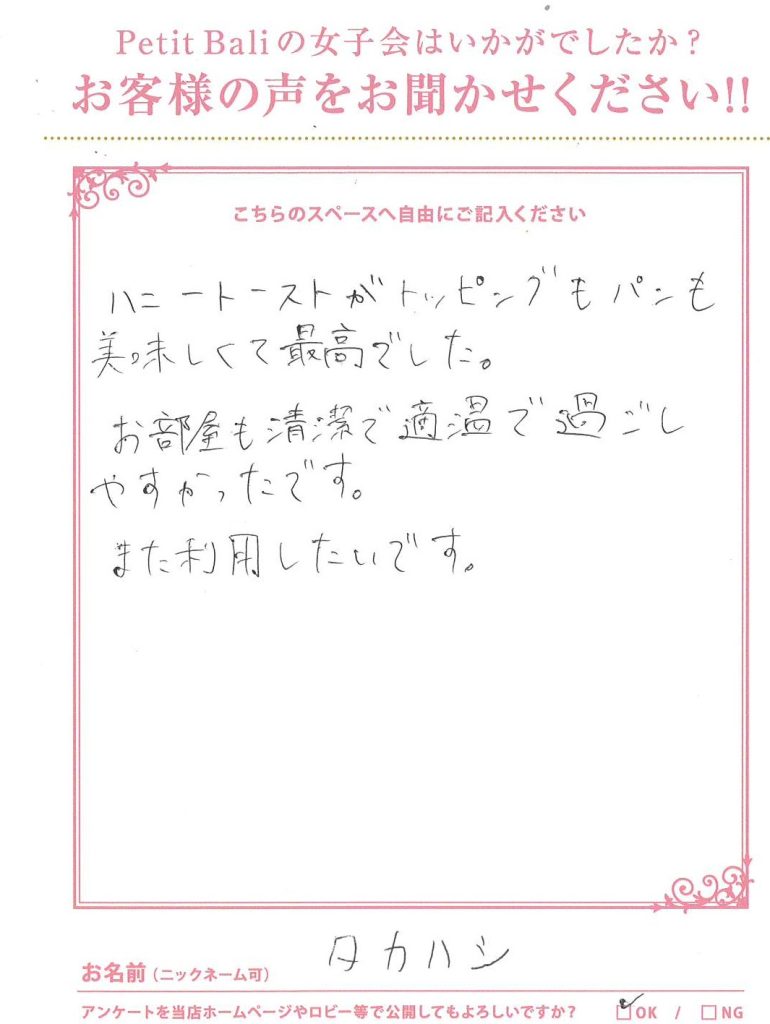 Petit Baliの女子会はいかがでしたか？
お客様の声をお聞かせください!!
こちらのスペースへ自由にご記入ください
ハニートーストがトッピングもパンも
美味しくて最高でした。
お部屋も清潔で適温で過ごし
やすかったです。
また利用したいです。
タカハシ
お名前（ニックネーム可）
アンケートを当店ホームページやロビー等で公開してもよろしいですか？ ☑OK / □NG